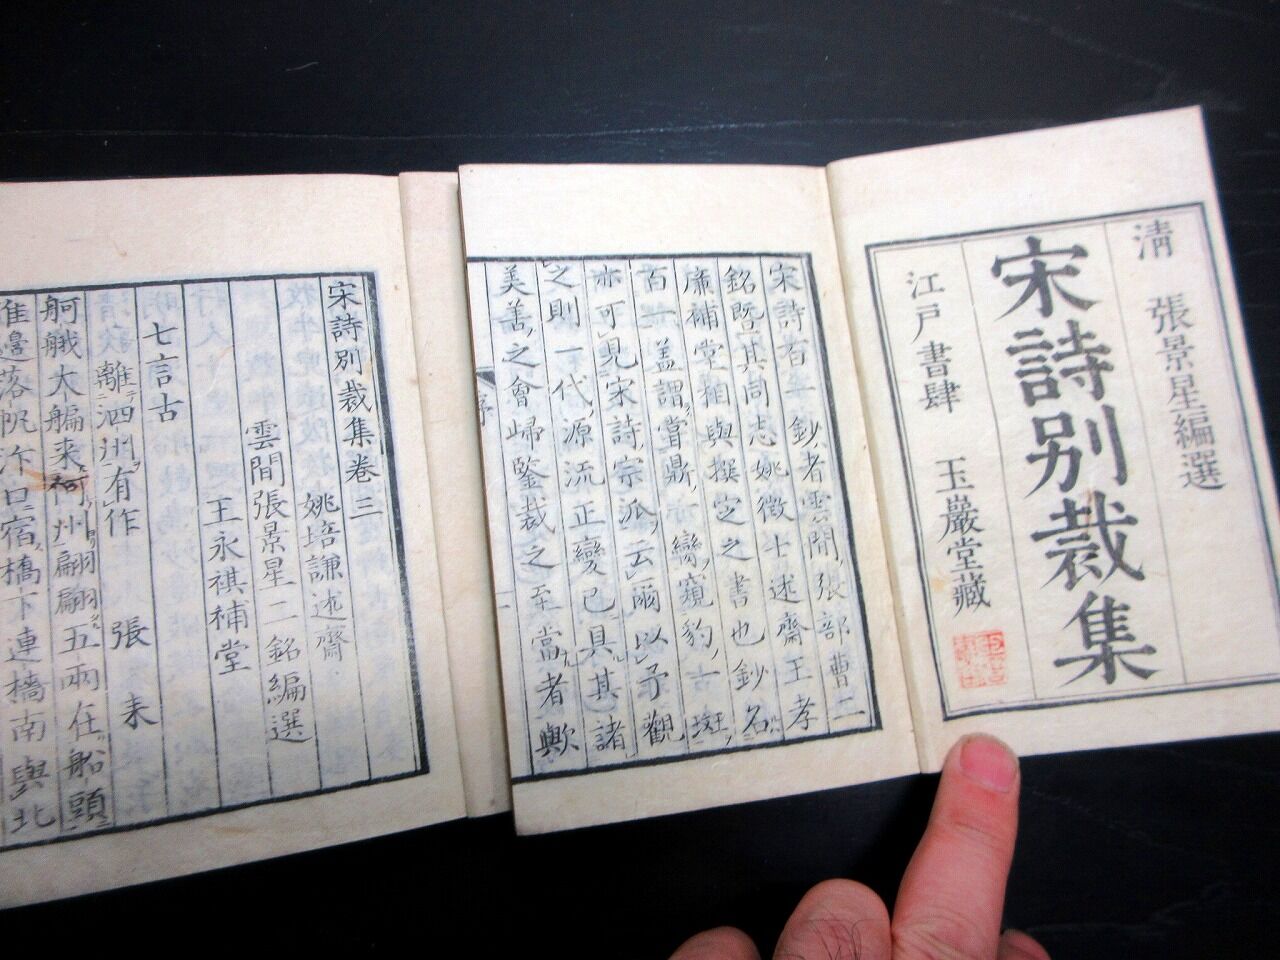 清 張景星編選
宋詩別裁集
江戸書肆 玉巖堂藏
宋詩百一鈔者雲間張部曹二
銘暨其同志姚徵士述齋王孝
廉補堂相與撰定之書也鈔名
百一蓋謂嘗鼎一臠窺豹一斑
亦可見宋詩宗派云爾以予觀
之則一代源流正變已具其諸
美善之會歸鑒裁之至當者歟
序
一
宋詩別裁集卷三
姚培謙述齋
雲間張景星二銘編選
王永祺補堂
七言古
離泗州有作 張耒
舸艤大艑来何州翩翩五兩在船頭
淮邊落帆汴口宿橋下連檣南與北